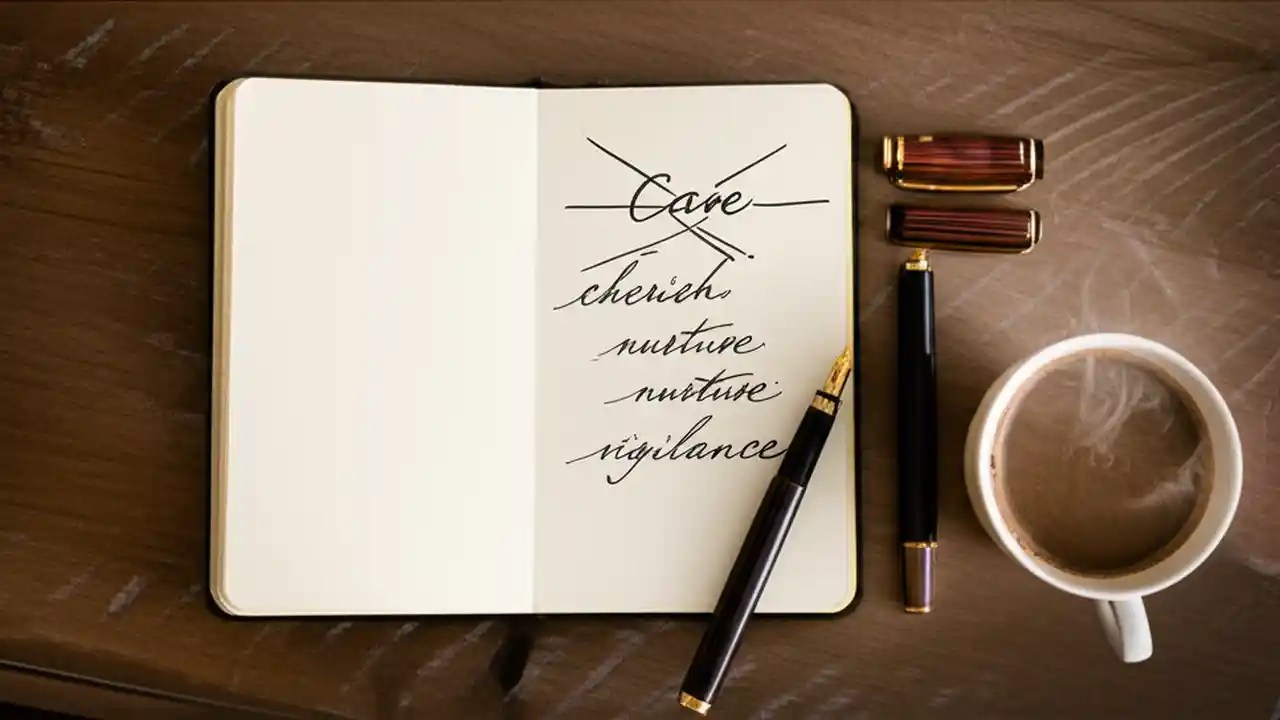 Care
cherish.
nurture
nurture
vigilance